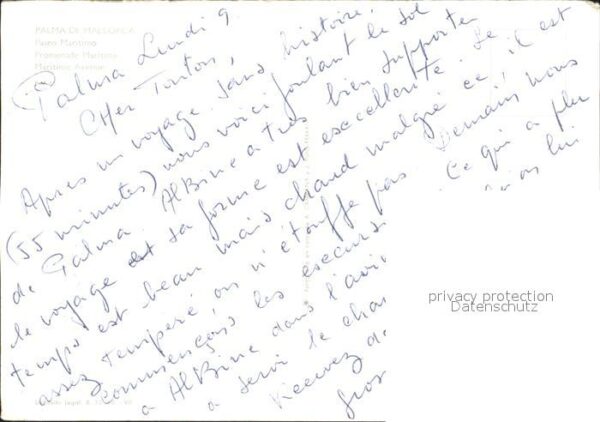 PALMA DE MALLORCA
Paseo Marítimo
Promenade Maritime
Maritime Avenue
Palma Lundi 9.
Cher Tonton,
Après un voyage sans histoire,
(55 minutes) nous voici foulant le sol
de Palma. AlBine a très bien supporter
le voyage et sa forme est escellente. Le
temps est beau mais chaud malgré ce, il est
assez tempéré, on n'étouffe pas. Demain nous
commençons les escurs
Ce qui a plu
a AlBine dans l'avi
lui
a servi le cha
Recevez de
gros
privacy protection
Datenschutz